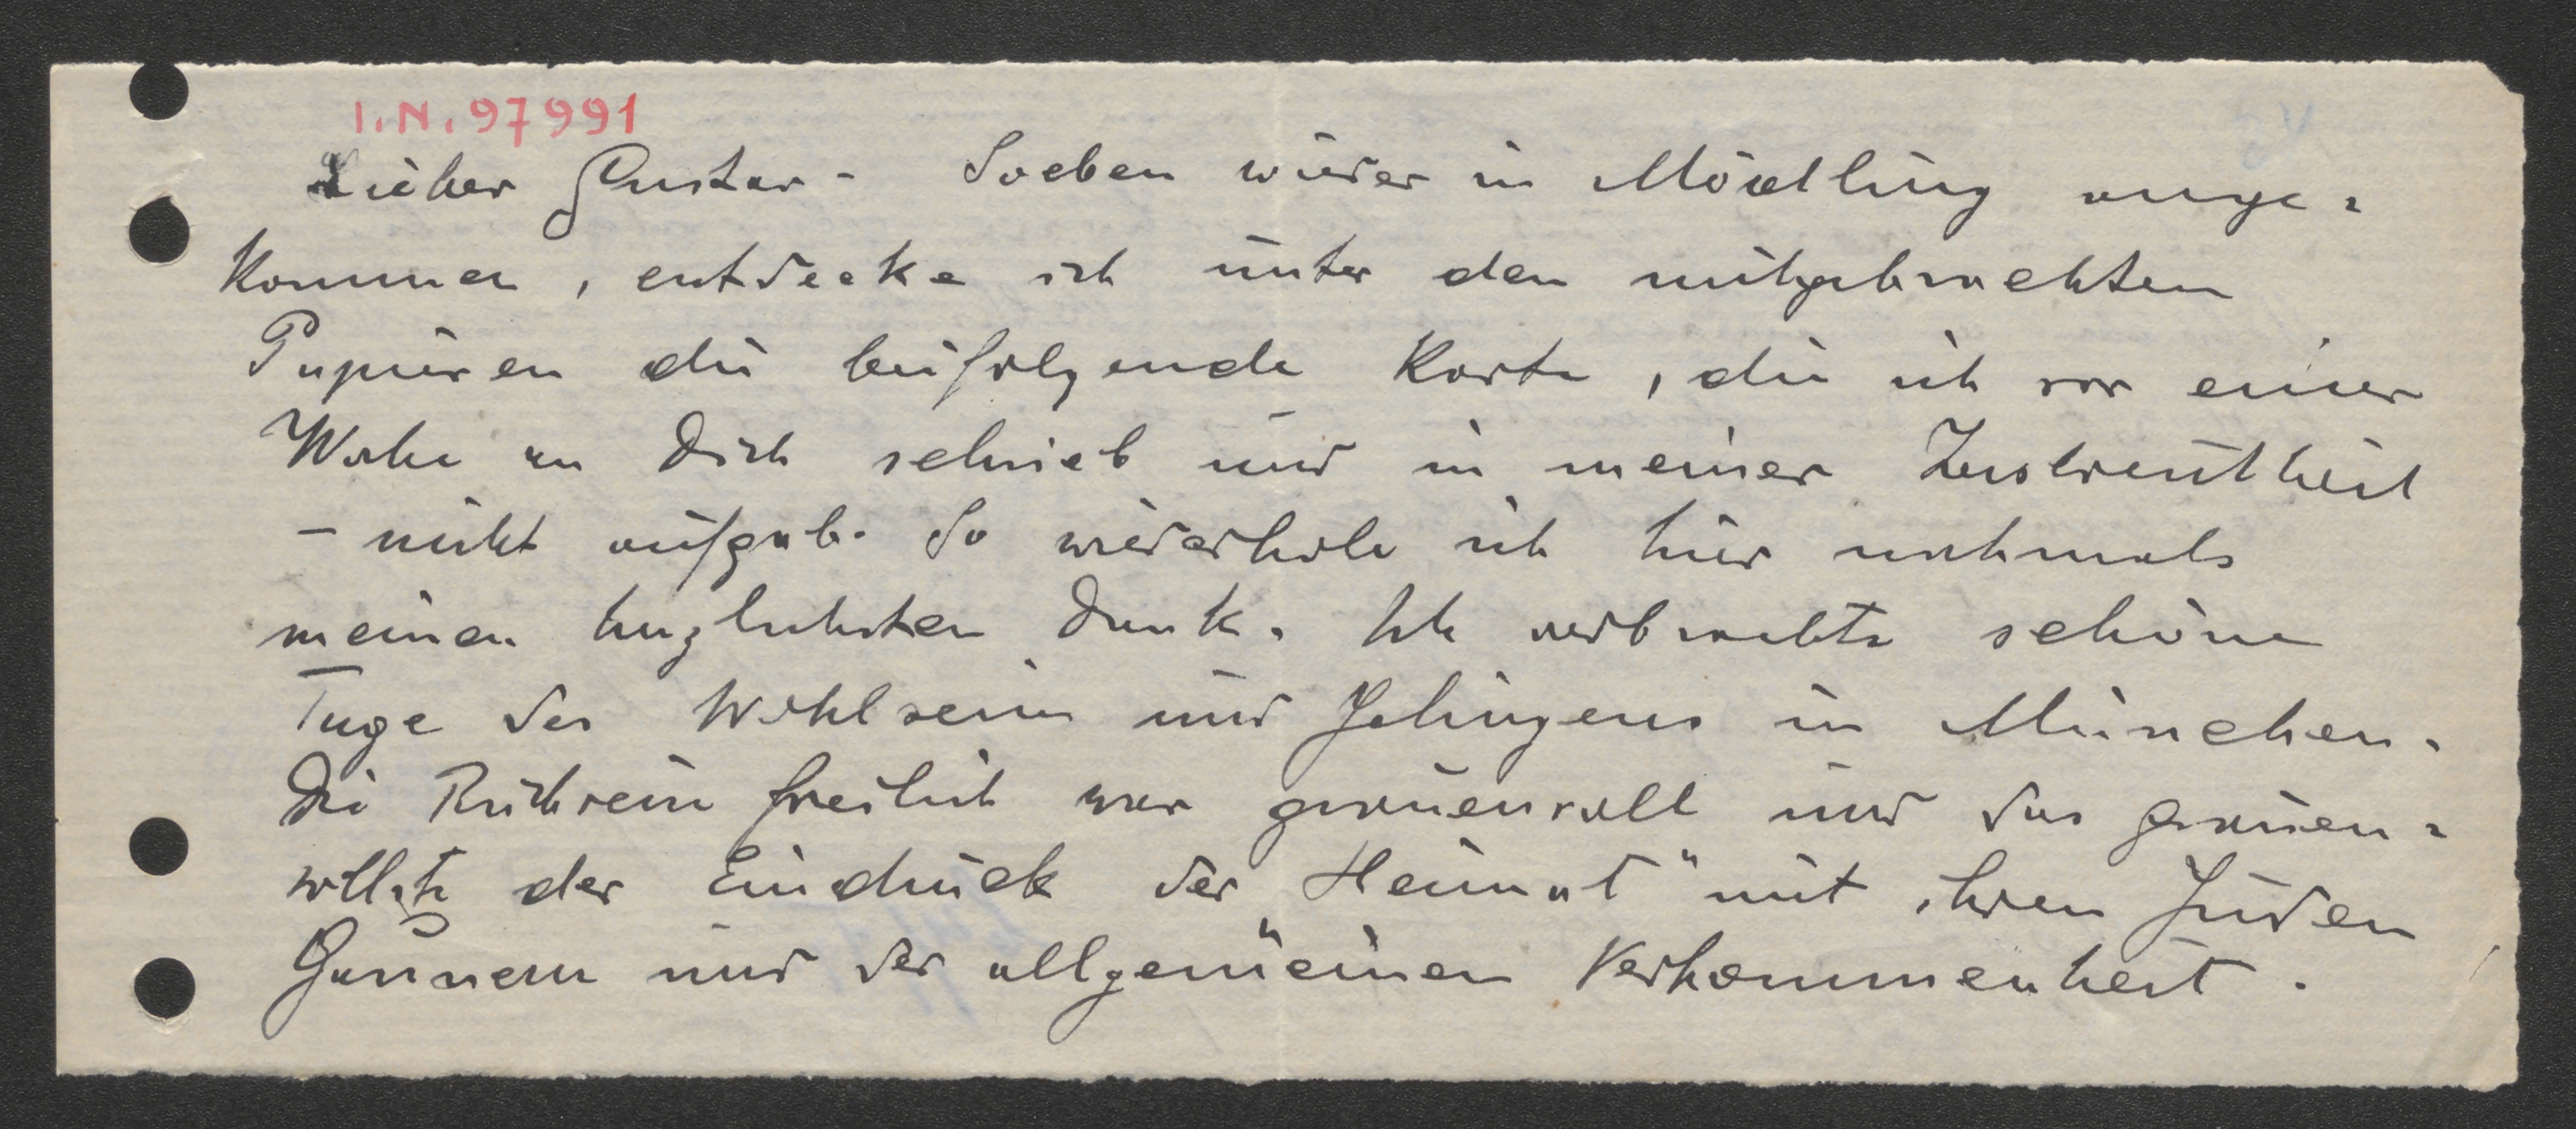 I.N. 97991
Lieber Gustav - Soeben wieder in Mödling ange=
kommen, entdecke ich unter den mitgebrachten
Papieren die beifolgende Karte, die ich vor einer
Woche an Dich schrieb und in meiner Zerstreutheit
- nicht aufgab. So wiederhole ich hier nochmals
meinen herzlichsten Dank. Ich verbrachte schöne
Tage des Wohlseins und Gelingens in München.
Die Rückreise freilich war grauenvoll und das grauen=
vollste der Eindruck der "Heimat" mit ihren Juden
Gaunern und der allgemeinen Verkommenheit.